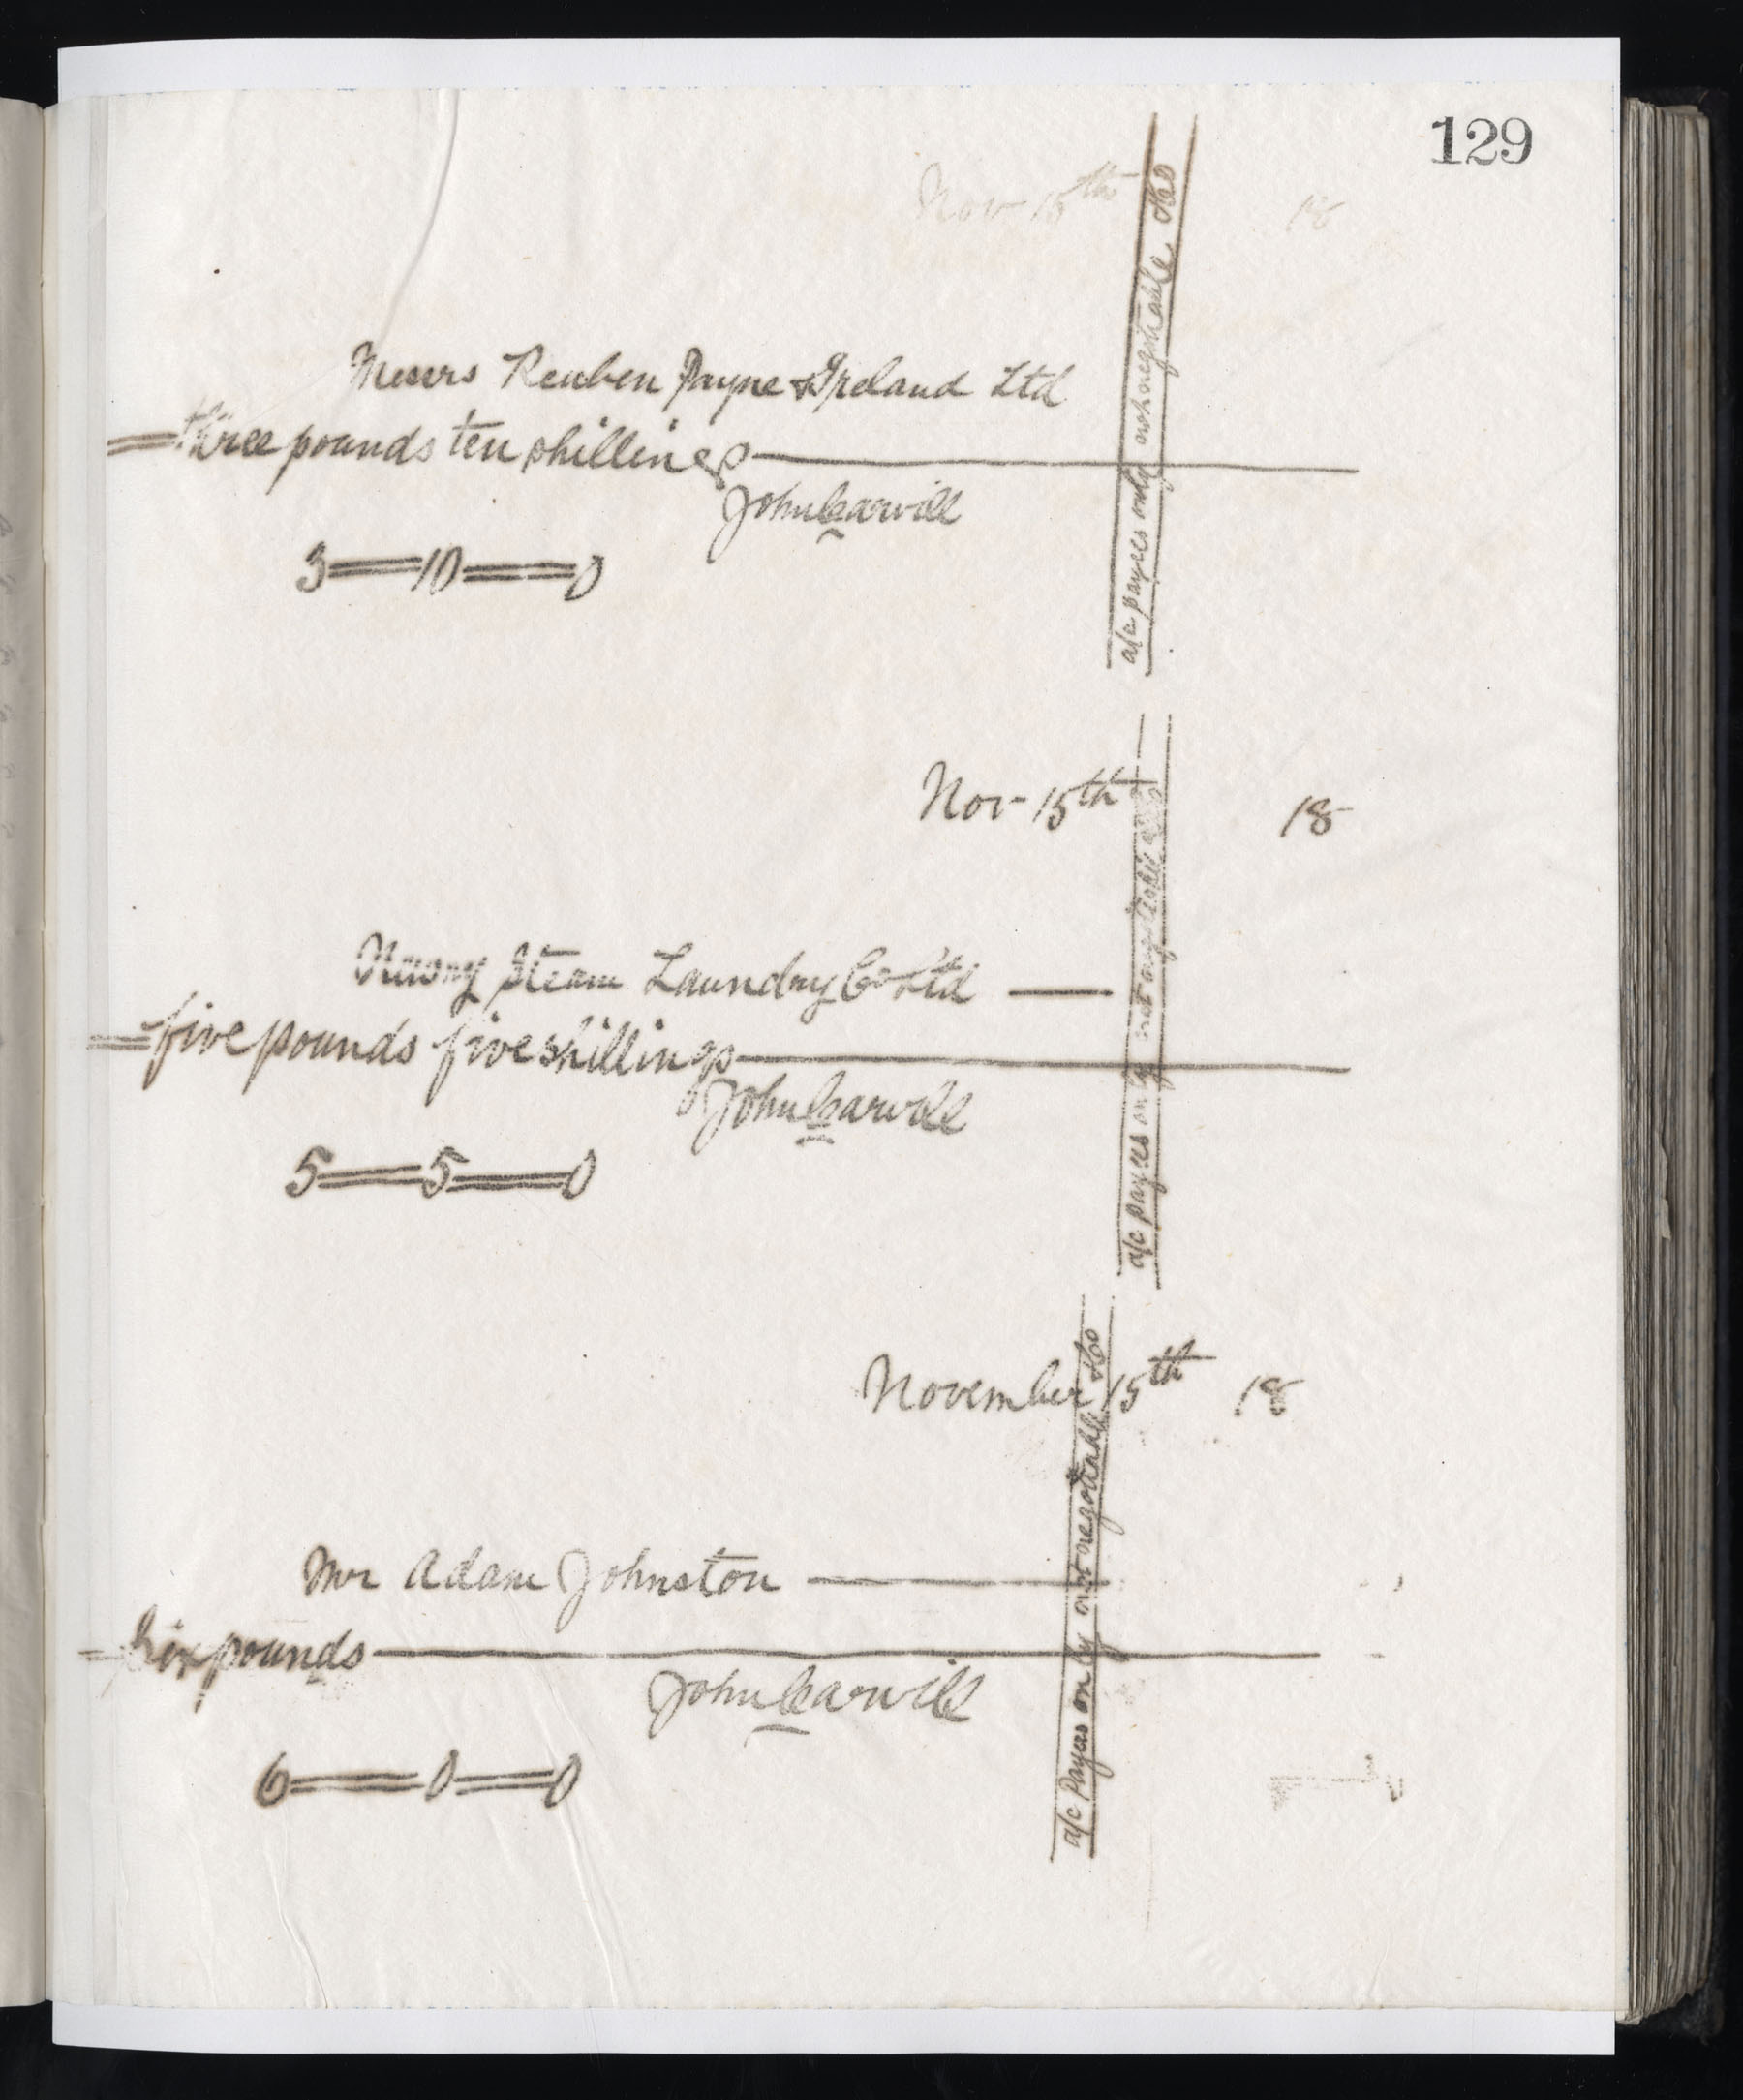 129
Nov 15th 18
Messrs Reuben Payne & Ireland Ltd
three pounds ten shillings
John Carvill
3 = 10 = 0
a/c payees only not negotiable &Co
Nov 15th 18
Newry Steam Laundry Co Ltd —
five pounds five shillings
John Carvill
5 = 5 = 0
a/c payees only not negotiable &Co
November 15th 18
Mr Adam Johnston —
Six pounds
John Carvill
6 = 0 = 0
a/c Payees only not negotiable &Co